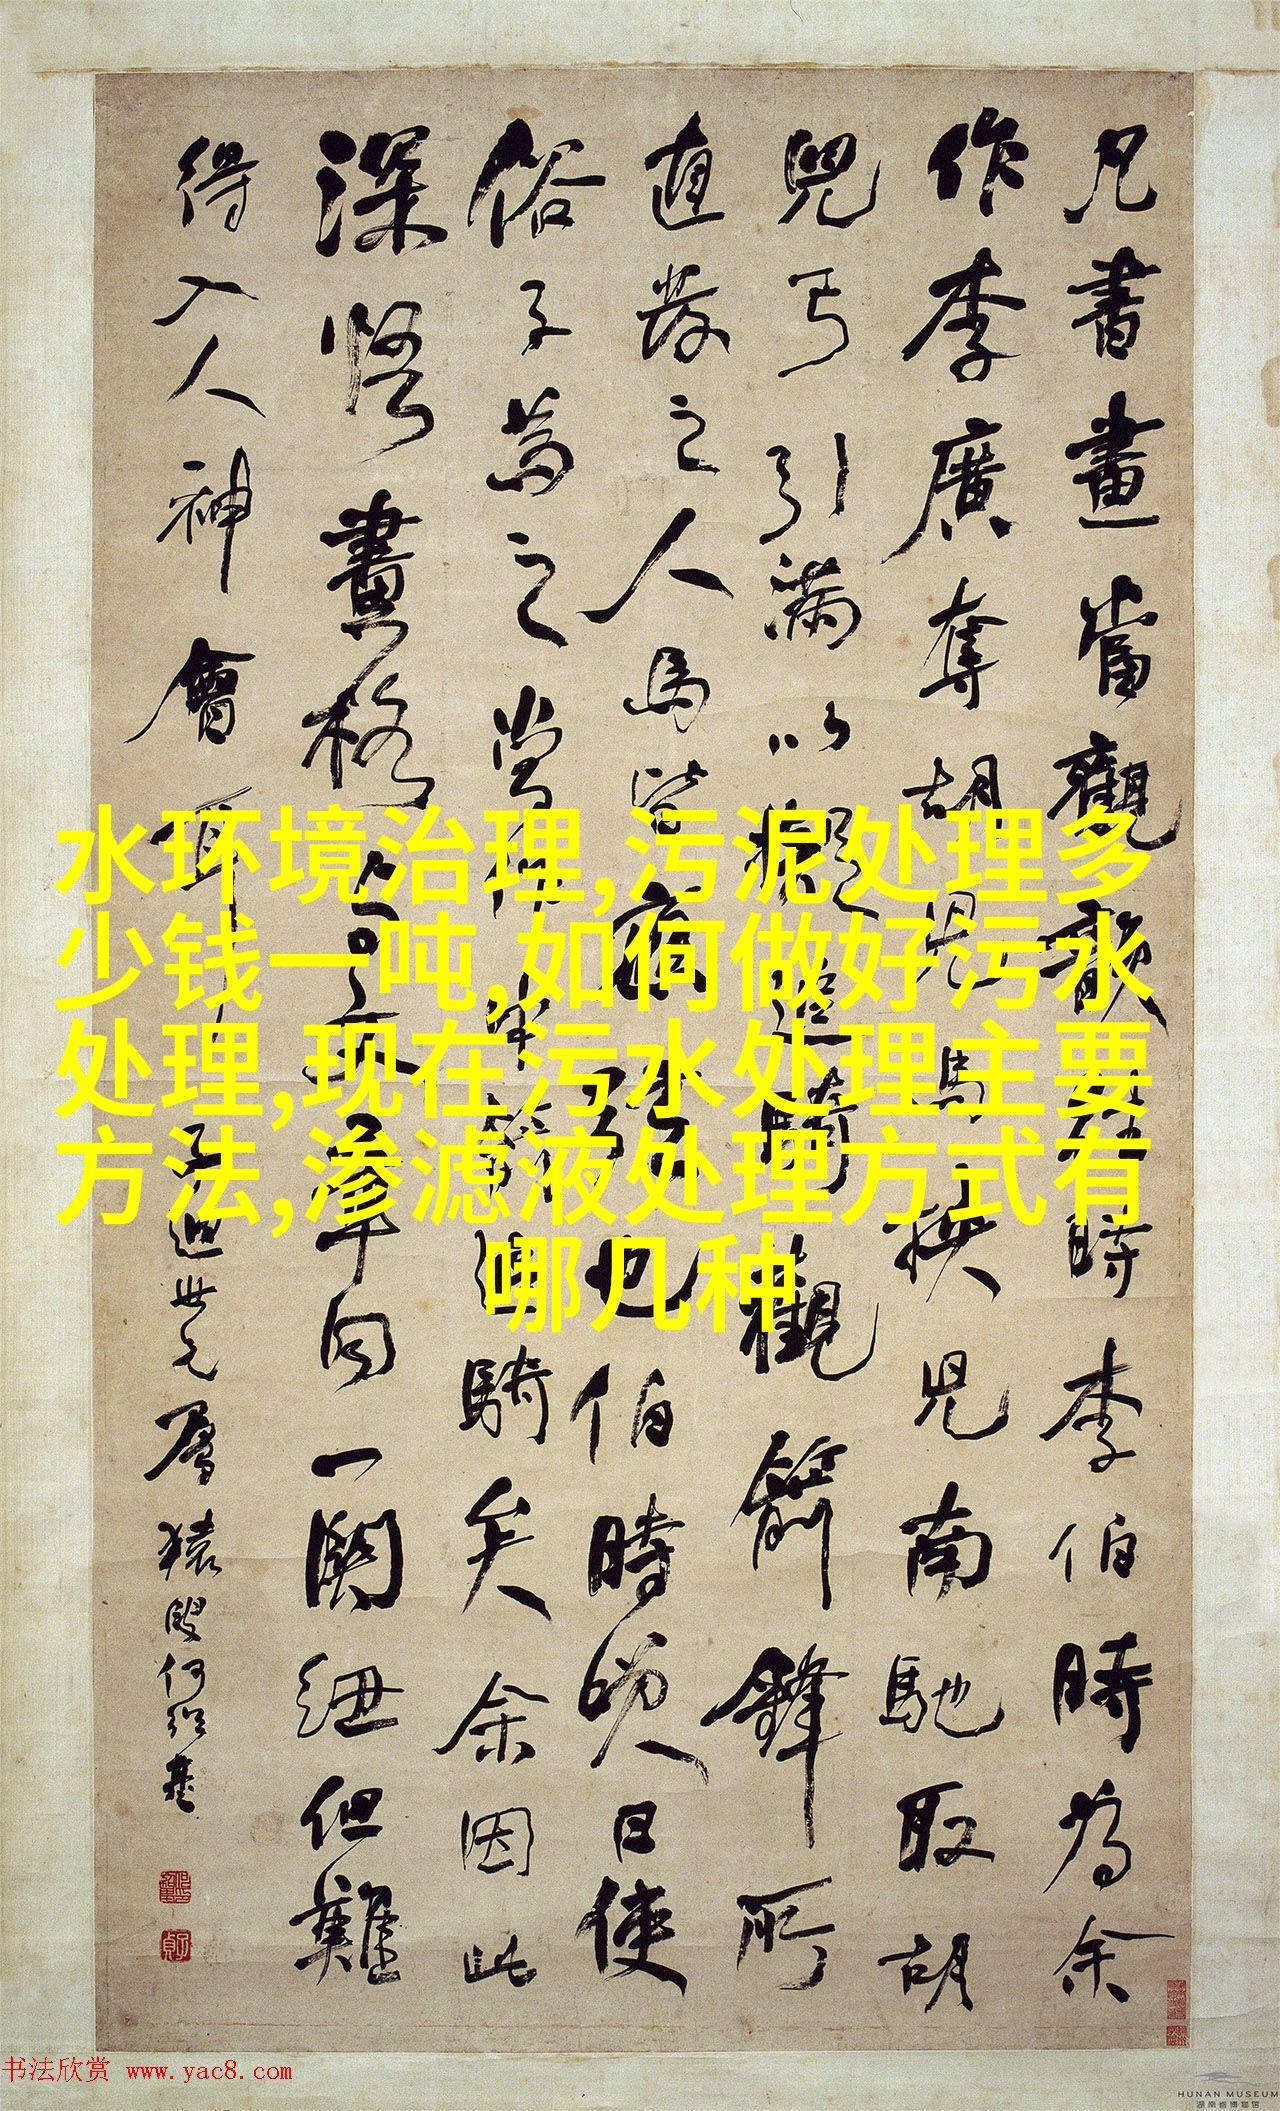 凡書畫當觀韻往時李伯時為余
作李廣奪胡兒馬挾兒南馳取胡
兒弓引滿以擬追騎觀箭鋒所
直發之人馬皆應弦也伯時笑曰使
俗子為之當作中箭追騎矣余因此
深悟畫格此與文章同一關紐但難
得入人神會耳
子迴世元屬 猿叟何紹基
水环境治理,污泥处理多
少钱一吨,如何做好污水
处理,现在污水处理主要
方法,渗滤液处理方式有
哪几种
书法欣赏 www.yac8.com
HUNAN MUSEUM
湖南省博物馆